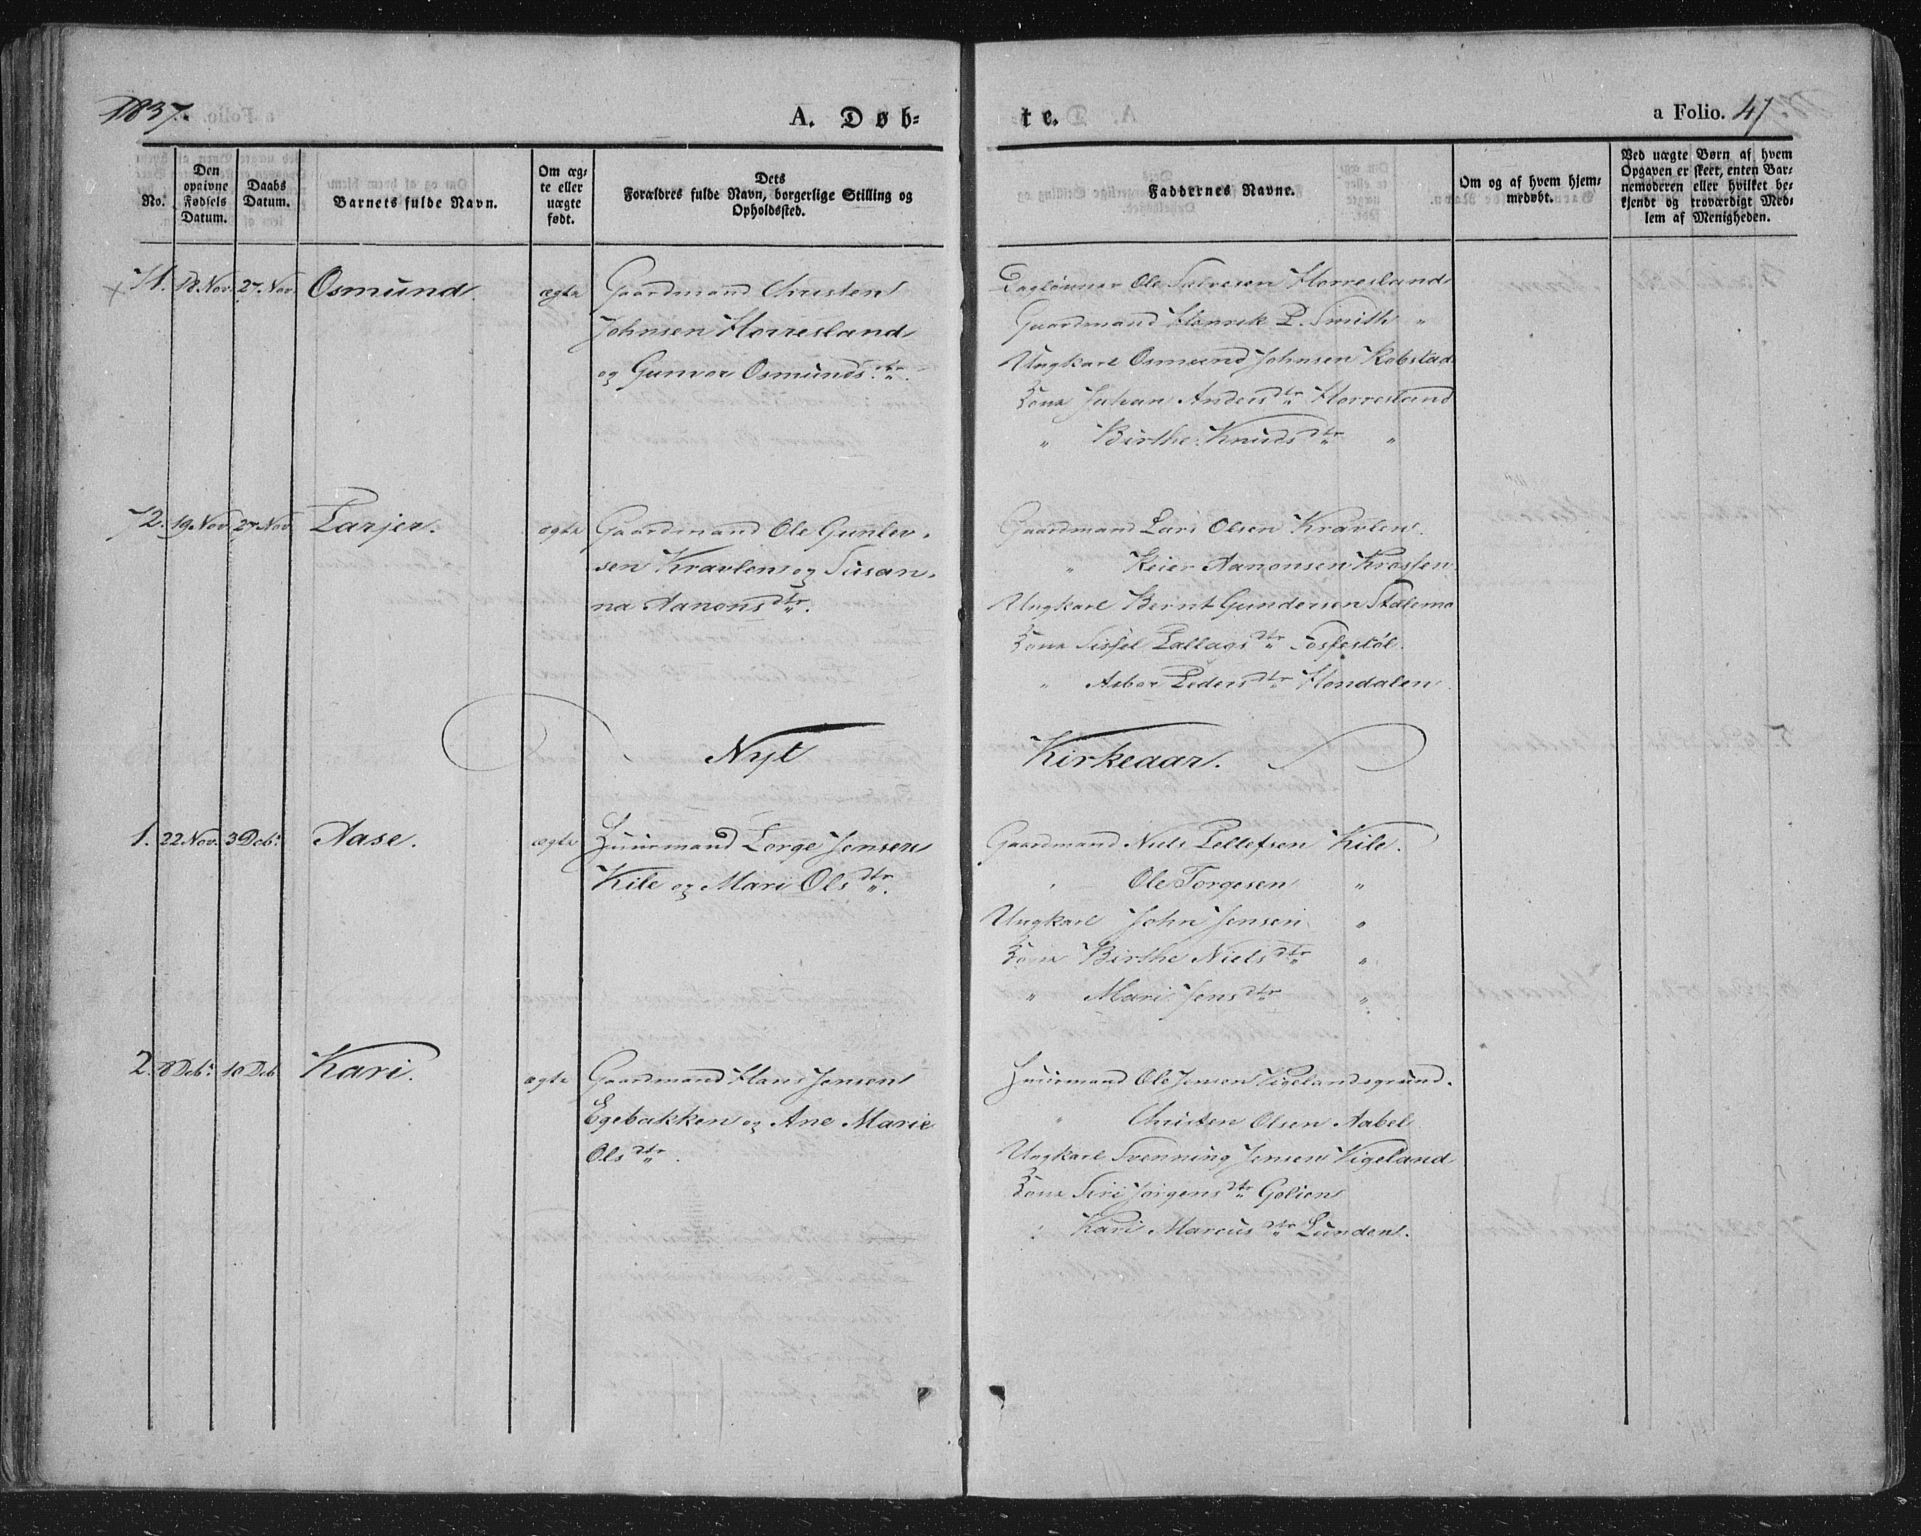 1837.
A. Døb-
te.
a Folio. 47
No.
Den opgivne Fødsels Datum.
Daabs Datum.
Barnets fulde Navn.
Om æg-
te eller
uægte
født.
Dets
Forældres fulde Navn, borgerlige Stilling og
Opholdssted.
Faddernes Navne.
Om og af hvem hjem-
medøbt.
Ved uægte Børn af hvem
Opgaven er skeet, enten Bar-
nemoderen eller hvilket be-
kjendt og troværdigt Med-
lem af Menigheden.
71. 18 Nov. 27. Nov. Osmund. ægte Gaardmand Christen
Johnsen Horresland
og Gunvor Osmundsdtr.
Daglønner Ole Salvesen Horresland
Gaardmand Henrik P. Smith "
Ungkarl Osmund Johnsen Robstad
Kone Johan Andersdtr Horresland
" Birthe Knudsdtr "
72. 19 Nov 27 Nov. Tarjer. ægte Gaardmand Ole Gunlev-
sen Kravlen og Susan-
na Aanonsdtr.
Gaardmand Lars Olsen Kravlen.
" Reier Aanonsen Krossen
Ungkarl Bernt Gundersen Stalemo
Kone Sissel Tallagsdtr Fossestøl.
" Asbor Pedersdtr Hondalen
Nyt Kirkeaar.
1. 22 Nov. 3 Decbr. Aase. ægte Huusmand Torge Jensen
Kile og Mari Olsdtr.
Gaardmand Niels Tellefsen Kile.
" Ole Torgesen "
Ungkarl John Jensen "
Kone Birthe Nielsdtr "
" Mari Jensdtr "
2. 8 Decbr. 10 Decb Kari. ægte Gaardmand Hans Jensen
Egebakken og Ane Marie
Olsdtr.
Huusmand Ole Jensen Vigelandsgrund.
" Christen Olsen Aabel
Ungkarl Svenning Jensen Vigeland
Kone Siri Jørgensdtr Golien
" Kari Marcusdtr Lunden.